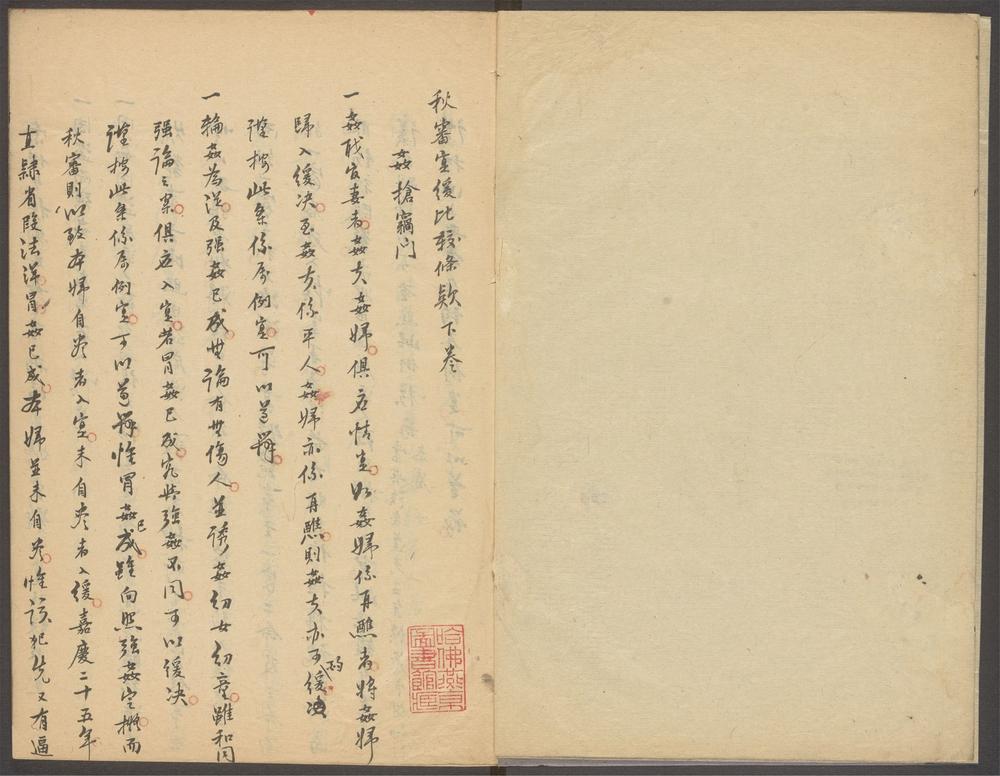 秋審實緩比較條款下卷
姦搶竊門
一姦職官妻者姦夫姦婦俱應情實如姦婦係再醮者將姦婦
歸入緩决至姦夫係平人姦婦亦係再醮則姦夫亦可酌緩决
謹按此条係屬例實可以草辦
一輪姦為從及强姦已成無論有無傷人並誘姦幼女幼童雖和同
强論之案俱应入實若冒姦已成究與強姦不同可以緩决
謹按此条係屬例實可以草辦惟冒姦已成雖向照強姦定擬而
秋審則以致本婦自尽者入實未自尽者入緩嘉慶二十五年
直隸省段法洋冒姦已成本婦並未自尽惟該犯先又有逼
哈佛燕京圖書館藏